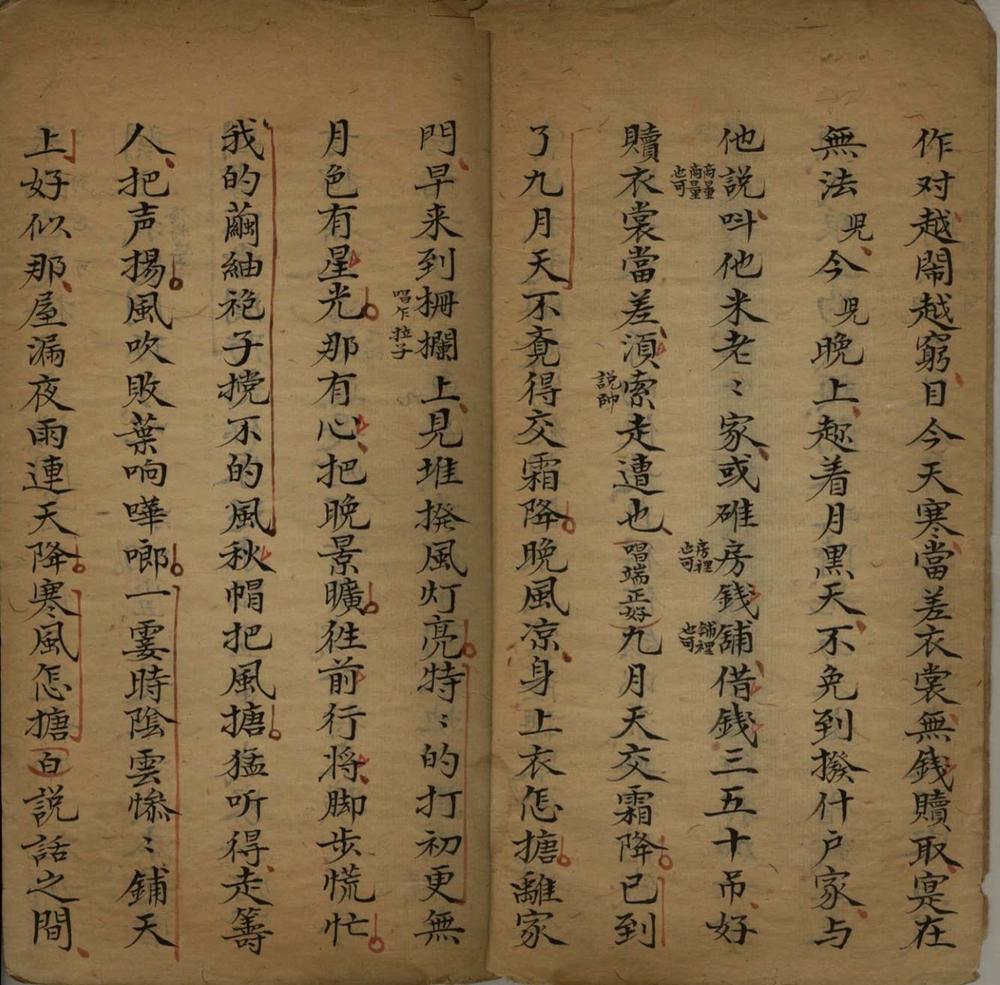 作对越閙越窮目今天寒當差衣裳無錢贖取寔在
無法児今児晚上趂着月黒天不免到撥什户家与
他説呌他米老〻家或碓房錢舖借錢三五十吊好
商量商量也可
房裡也可
舖裡也可
贖衣裳當差湏索走遭也唱端正好九月天交霜降已到
説帥
了九月天不竟得交霜降晚風凉身上衣怎搪離家
門早来到栅欄上見堆撥風灯亮特〻的打初更無
唱乍拉子
月色有星光那有心把晚景曠徃前行将脚步慌忙
我的繭紬袍子搅不的風秋帽把風搪猛听得走籌
人把声揚風吹敗葉响嘩啷一霎時陰雲惨〻鋪天
上好似那屋漏夜雨連天降寒風怎搪白説話之間